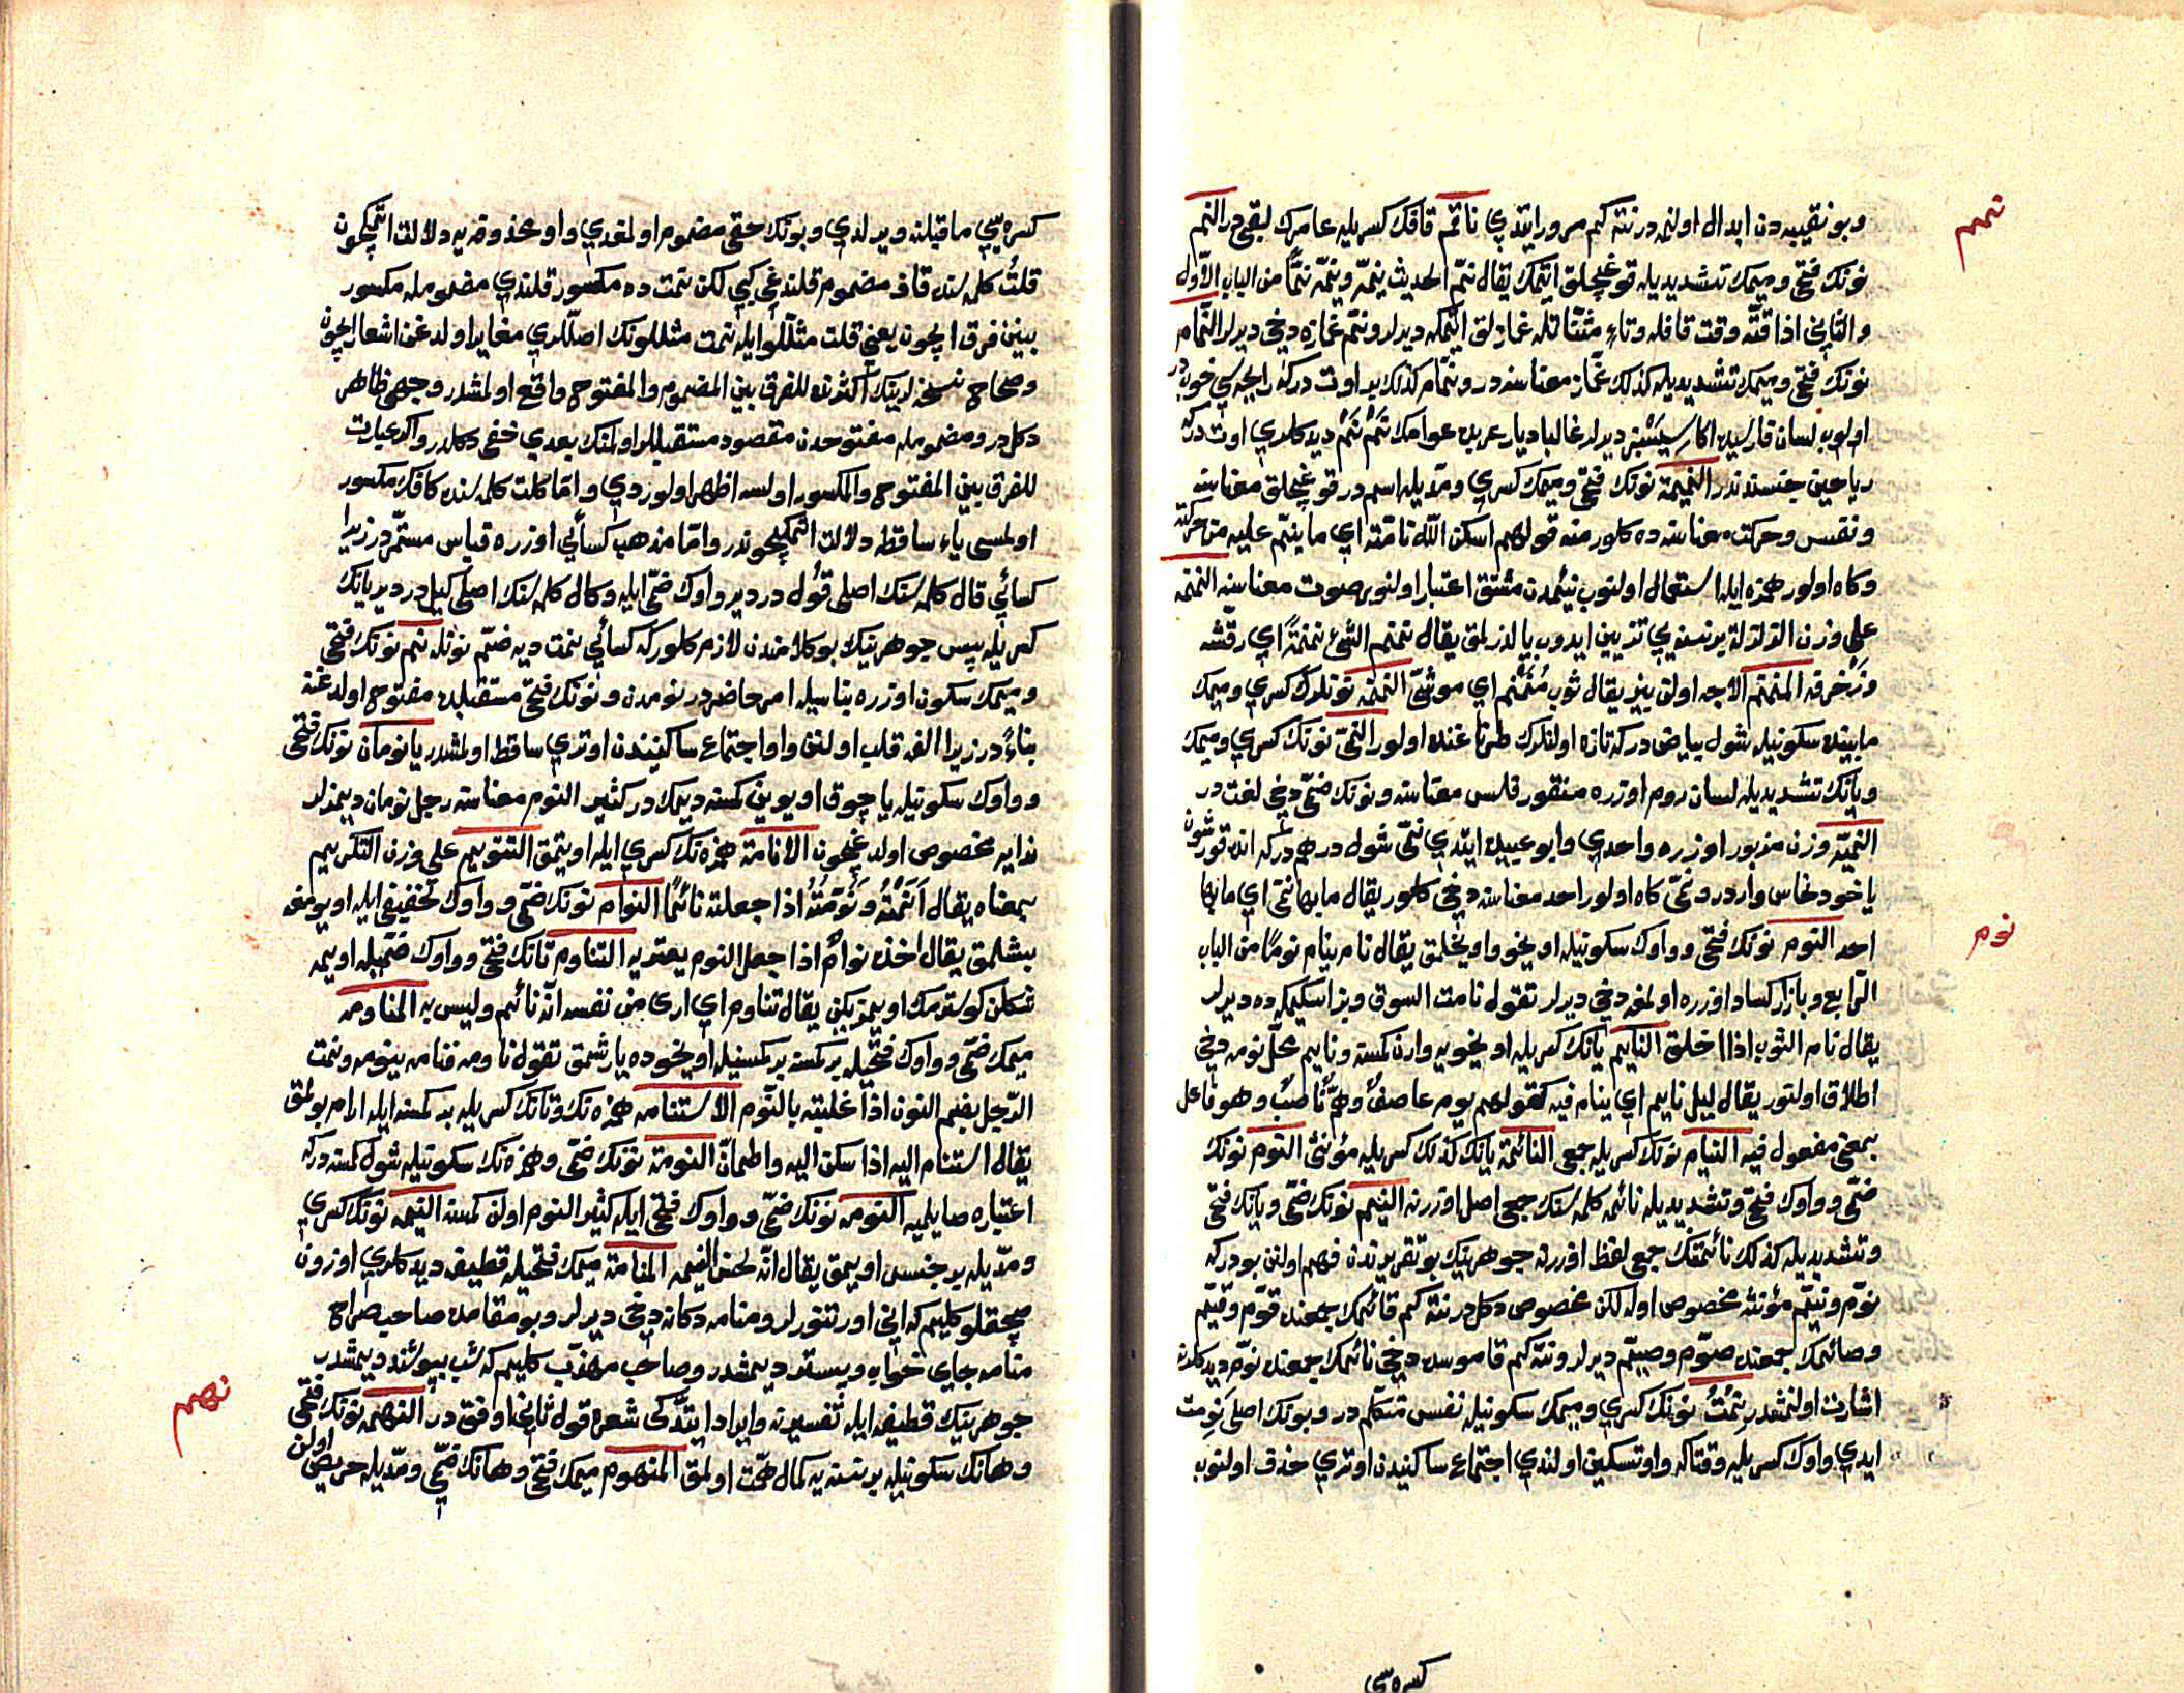 نمم
وبو نقيبه دن ابدال اولنمه در نته كم مرور ايتدي ناتم قافك كسريله عامرك لبقي در النم
نونك فتحي وميمك تشديديله قوغجلق ايتمك يقال نم الحديث ينمه وينمه نما من الباب الاول
والثاني اذا قته وقت قافله وتاء مثناتله غمازلق ايتمكه ديرلر ونم غمازه دخي ديرلر النمام
نونك فتحي وميمك تشديديله كذلك غماز معناسنه در ونمام كذلك بر اوت در كه رايحه سي خوب در
اولوب لسان فارسيده اكا سيسنبر ديرلر غالبا ديار عربده عوامك نمم نمم ديدكلري اوت در كه
رياحين جنسندندر النميمة نونك فتحي وميمك كسري ومديله اسم در قوغجلق معناسنه
ونفس وحركت معناسنه ده كلور منه قولهم اسكن الله نامته اي ما ينم عليه من حركته
وكاه اولور همزه ايله استعمال اولنوب نئيمدن مشتق اعتبار اولنور صوت معناسنه النمنمه
على وزن الزلزلة بر نسنه يي تزيين ايدوب يالدزلمق يقال نمنم الشئ نمنمة اي رقشه
وزخرفه المنمنم الاجه اولن بيز يقال ثوب منمنم اي موشى النمنم نونلرك كسري وميمك
مابينده سكونيله شول بياض در كه تازه اولنلرك طرنا غنده اولور النمي نونك كسري وميمك
ويانك تشديديله لسان روم اوزره منقور فلس معناسنه ونونك ضمي دخي لغت در
النمية وزن مزبور اوزره واحدي وابو عبيد ايتدي نمي شول درهم در كه انده قورشون
يا خود نحاس وار در ونمي كاه اولور احد معناسنه دخي كلور يقال ما بها نمي اي ما بها
نوم
احد النوم نونك فتحي وواوك سكونيله اويخو واويخلمق يقال نام ينام نوما من الباب
الرابع وبازار كساد اوزره اولمغه دخي ديرلر تقول نامت السوق وبز اسكيمكه ده ديرلر
يقال نام الثوب اذا اخلق النايم يانك كسريله اويخويه وارن كمسنه ونايم محل نومه دخي
اطلاق اولنور يقال ليل نايم اي ينام فيه كقولهم يوم عاصف وهم ناصب وهو فاعل
بمعنى مفعول فيه النيام نونك كسريله جمعي النائمة يانك كذلك كسريله مؤنثي النوم نونك
ضمي وواوك فتحي وتشديديله نائمه كلمه سنك جمعي اصل اوزرنه النيم نونك ضمي ويانك فتحي
وتشديديله كذلك نائمه نك جمعي لفظ اوزرنه جوهرينك بو تقريرندن فهم اولنن بودر كه
نوم ونيم مؤنثه مخصوص اوله لكن مخصوص دكل در نته كم قائمك جمعنده قوم وقيم
وصائمك جمعنده صوم وصيم ديرلر ونته كم قاموسده دخي نائمك جمعنده نوم ديدكلرنه
اشارت اولنمشدر نمت نونك كسري وميمك سكونيله نفس متكلم در وبونك اصلي نومت
ايدي واوك كسريله وقتاكه واو تسكين اولندي اجتماع ساكنيدن اوتري حذف اولنوب
كسره سي
كسره سي ماقبلنه ويرلدي وبونك حقي مضموم اولمغدي واو محذوفه يه دلالت ايتمكچون
قلت كلمه سنده قاف مضموم قلندغي كبي لكن نمت ده مكسور قلندي مضمومله مكسور
بينن فرق ايچون يعني قلت مثللو ايله نمت مثللونك اصللري مغاير اولدغن اشعار ايچون
وصحاح نسخه لرينك اكثرنده للفرق بين المضموم والمفتوح واقع اولمشدر وجهي ظاهر
دكل در ومضمومله مفتوحدن مقصود مستقبللر اولمنك بعدي خفي دكلدر واكر عبارت
للفرق بين المفتوح والمكسور اولسه اظهر اولوردي واما كلت كلمه سنده كافك مكسور
اولمسي ياء ساقطه دلالت ايتمكيچوندر واما مذهب كسائي اوزره قياس مستمر در زيرا
كسائي قال كلمه سنك اصلي قول در دير واوك ضمي ايله وكال كلمه سنك اصلي كيل در دير يانك
كسريله پس جوهرينك بو كلامندن لازم كلور كه كسائي نمت ديه ضم نونله نم نونك فتحي
وميمك سكون اوزره بناسيله امر حاضر در نومدن ونونك فتحي مستقبلده مفتوح اولدغنه
بناء در زيرا الفه قلب اولنن واو اجتماع ساكنيندن اوتري ساقط اولمشدر يا نومان نونك فتحي
وواوك سكونيله يا چوق اويوين كمسنه ديمك در كثير النوم معناسنه رجل نومان ديمزلر
ندايه مخصوص اولدغيچون الانامة همزه نك كسري ايله اويتمق التنويم على وزن التكريم
بمعناه يقال انمته ونومته اذا جعلته نائما النوام نونك ضمي وواوك تخفيفي ايله اويومغه
بشلمق يقال اخذه نوام اذا جعل النوم يعتريه التناوم تانك فتحي وواوك ضميله اويمه
شكلن كوسترمك اويمزيكن يقال تناوم اي ارى من نفسه انه نائم وليس به المناومه
ميمك ضمي وواوك فتحيله بر كمسنه بر كمسنيله اويخوده يارشمق تقول ناومه فنامه ينومه ونمت
الرجل بضم النون اذا غلبته بالنوم الاستنامه همزه نك وتانك كسريله بر كمسنه ايله ارام بولمق
يقال استنام اليه اذا سكن اليه واطمان النومة نونك ضمي وهمزه نك سكونيله شول كمسنه در كه
اعتباره صايلميه النومه نونك ضمي وواوك فتحي ايله كثير النوم اولن كمسنه النيمه نونك كسري
ومديله بر جنس اويمق يقال انه لحسن النيمه المنامة ميمك فتحيله قطيفه ديدكلري اوزون
صچقلو كليم كه اني اورتنورلر ومنامه دكانه دخي ديرلر وبو مقامده صاحب صراح
منامه جاي خواب وبستر ديمشدر وصاحب مهذب كليم كه شب بپوشند ديمشدر
جوهرينك قطيفه ايله تفسيرنه وايراد ايتدكي شعره قول ثاني اوفق در النهم نونك فتحي
نهم
وهانك سكونيله بر نسنه يه كمال همت اولمق المنهوم ميمك فتحي وهانك ضمي ومديله حريص اولن